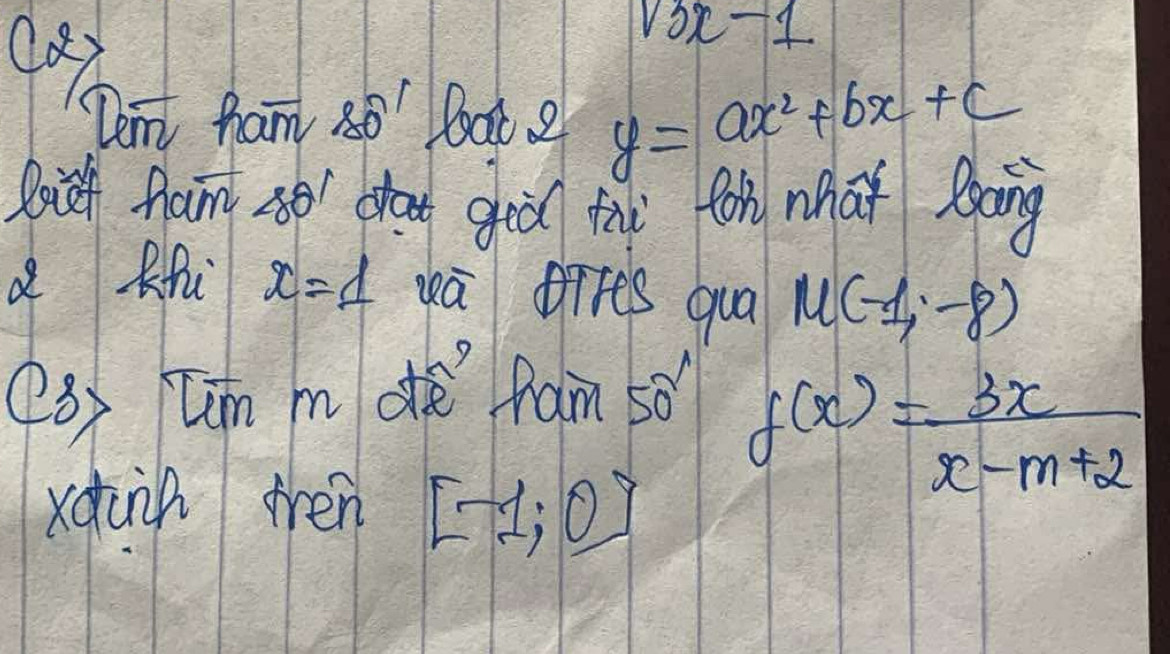 √3x-1
C2>
Tìm hàm số bậc 2 y = ax² + bx + c
biết hàm số đạt giá trị lớn nhất bằng
2 khi x=1 và ĐTHS qua M(-1; -8)
C3> Tìm m để hàm số f(x) = 3x / x-m+2
xđịnh trên [-1; 0]